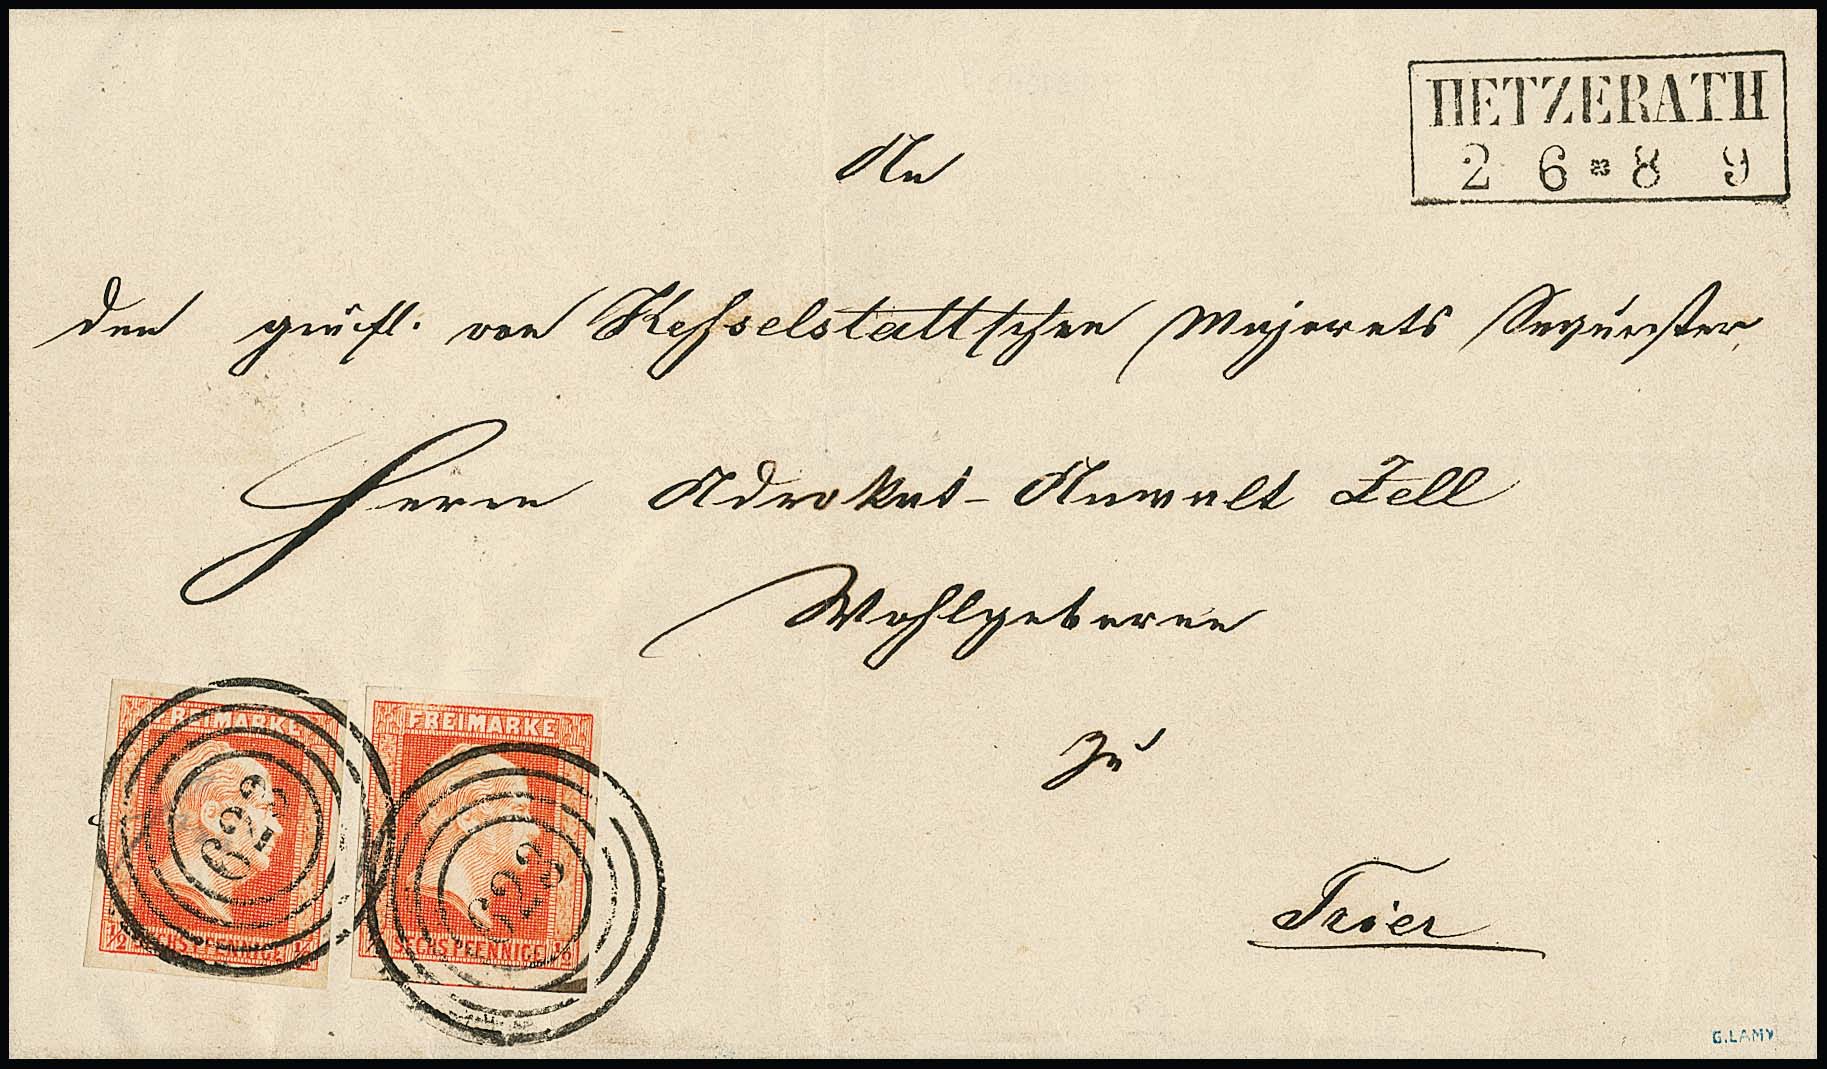 HETZERATH
2 6 * 8 9
An
den gräfl. von Kesselstattschen Majorats Sequester,
Herrn Advokat-Anwalt Zell
Wohlgeboren
zu
Trier
FREIMARKE
FREIMARKE
623
623
1/2 SECHS PFENNIGE 1/2
1/2 SECHS PFENNIGE 1/2
G.LAMY